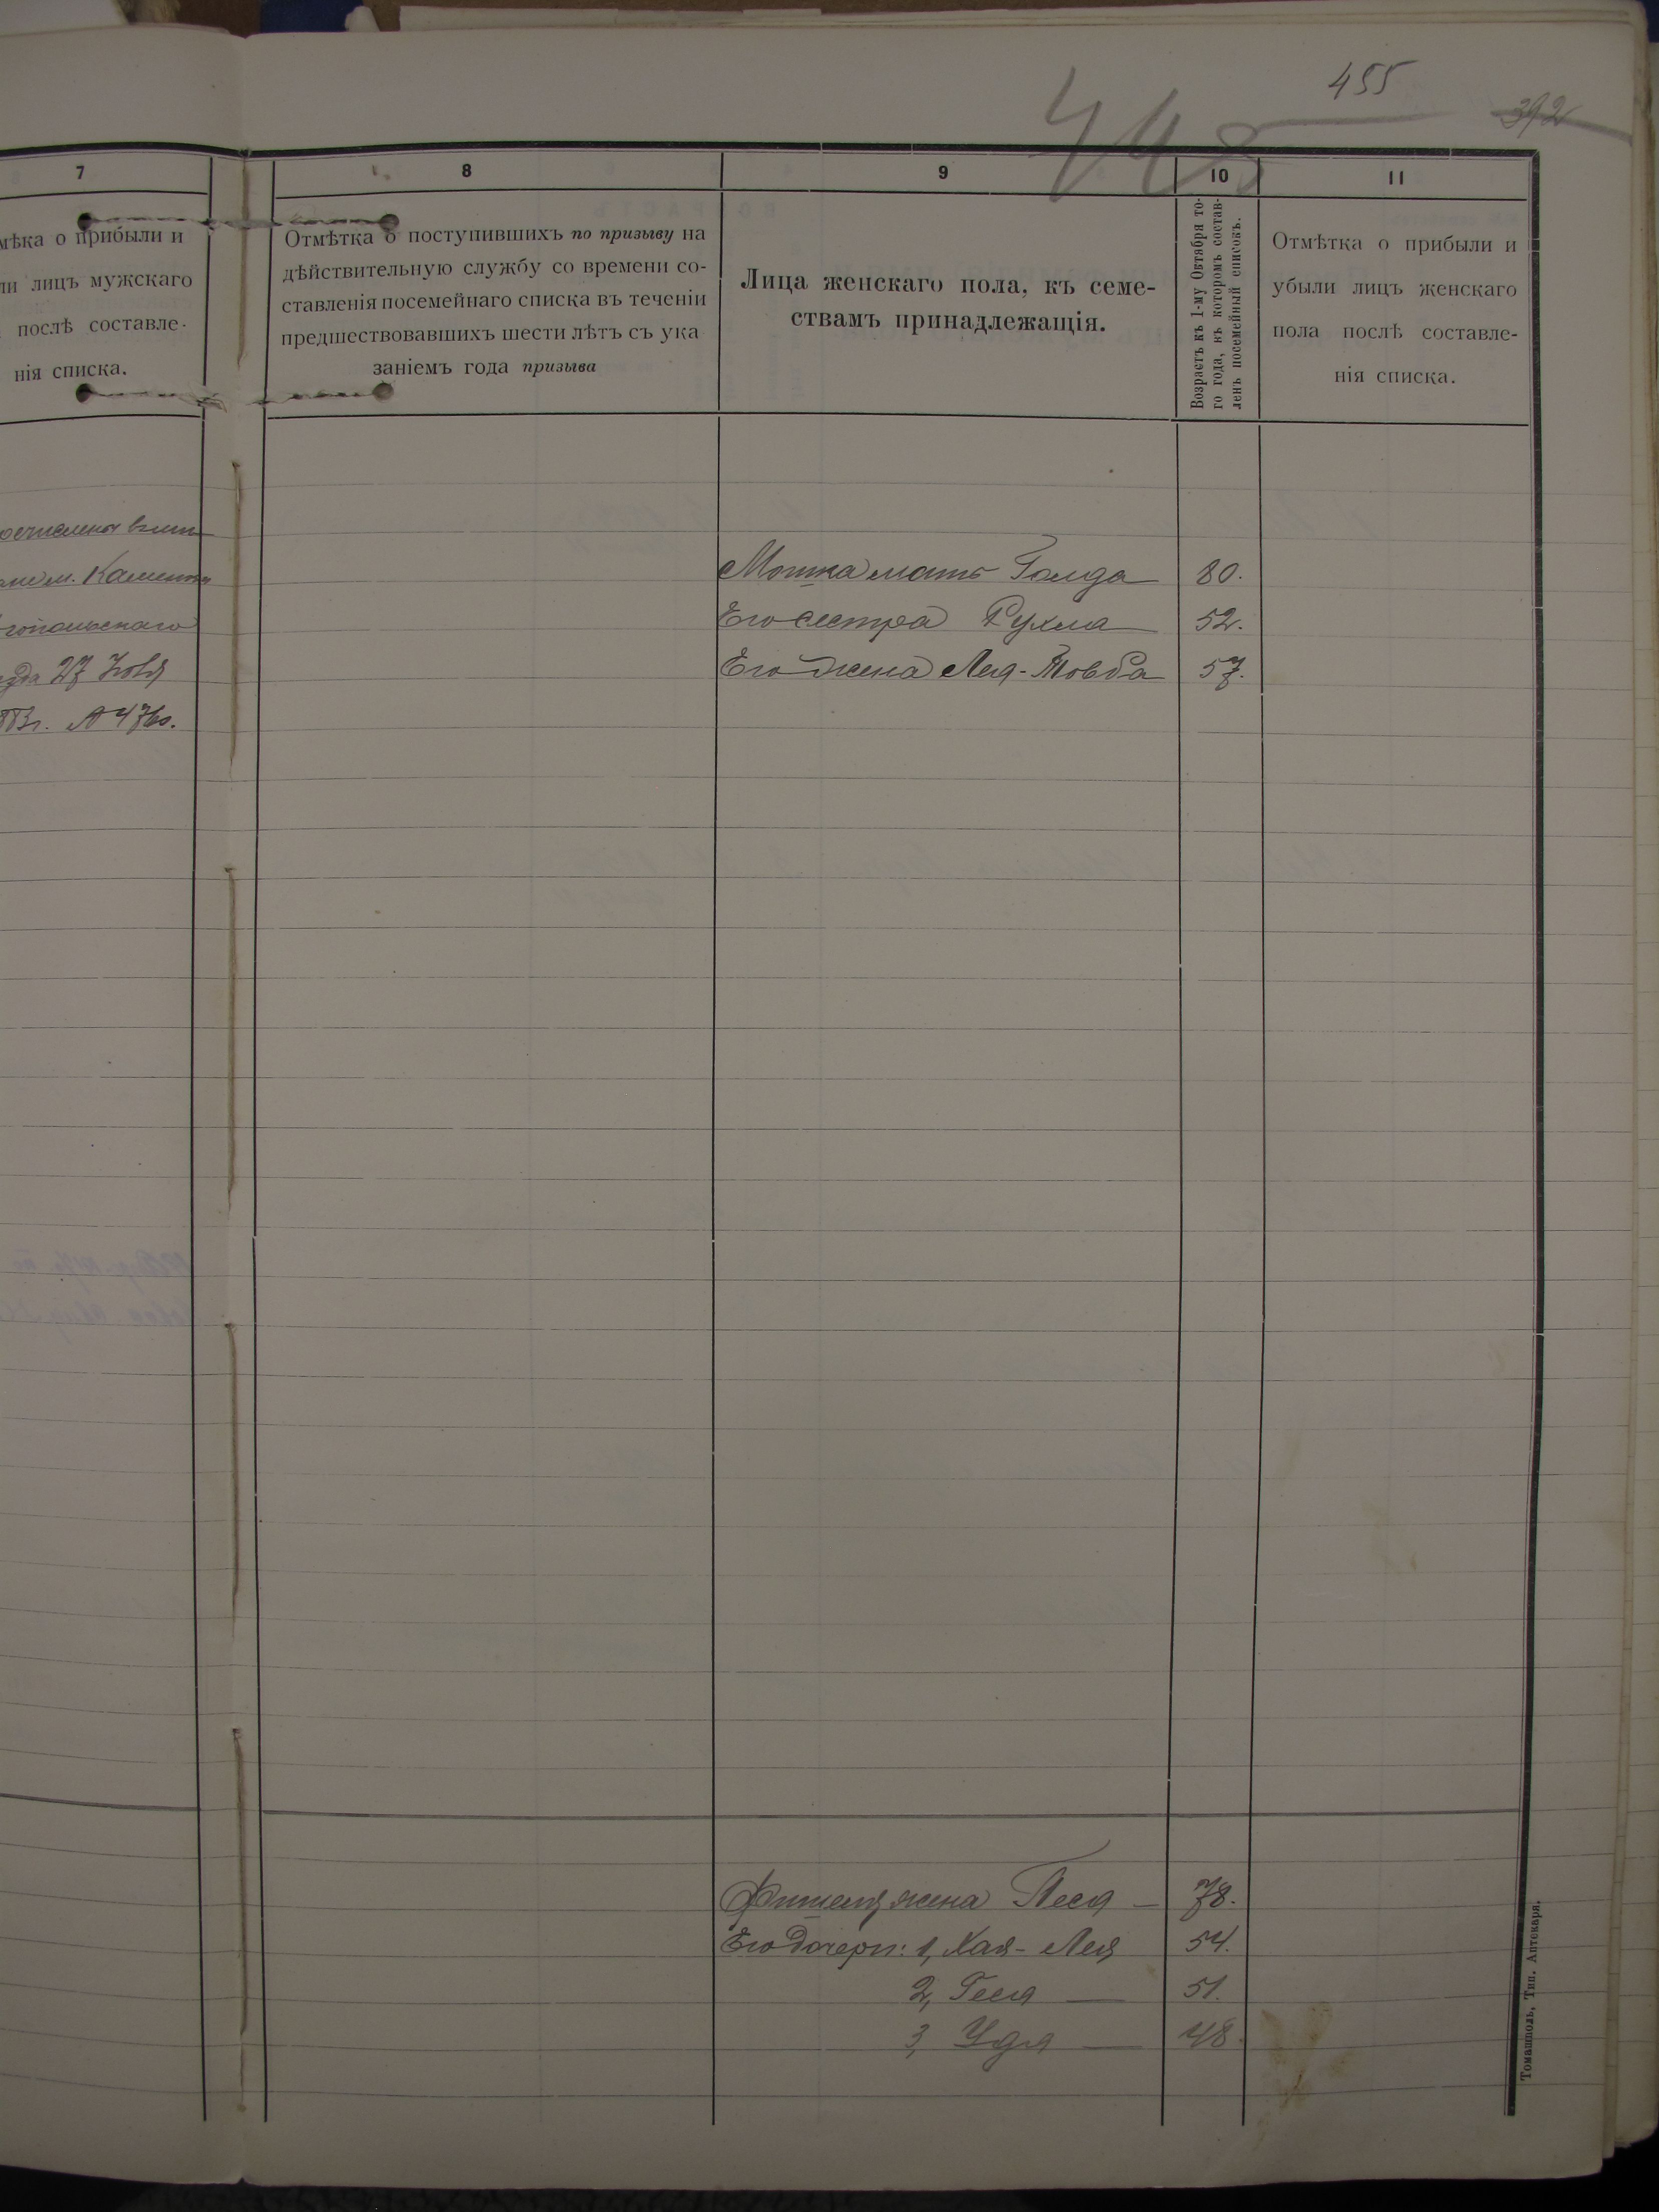 455
392
448
7
8
9
10
11
мѣка о прибыли и
ли лицъ мужскаго
послѣ составле-
нія списка.
Отмѣтка о поступившихъ по призыву на
дѣйствительную службу со времени со-
ставленія посемейнаго списка въ теченіи
предшествовавшихъ шести лѣтъ съ ука
заніемъ года призыва
Лица женскаго пола, къ семе-
ствамъ принадлежащія.
Возрастъ къ 1-му Октября то-
го года, къ которомъ состав-
ленъ посемейный списокъ.
Отмѣтка о прибыли и
убыли лицъ женскаго
пола послѣ составле-
нія списка.
м. Каменка
27 Ноя
83г. № 4760.
Мошка мать Голда 80.
Его сестра Рухля 52.
Его жена Лея-Товба 57.
Фишеля жена Песя — 78.
Его дочери: 1, Хая-Лея 54.
2, Геня — 51.
3, Удя — 48.
Томашполь, Тип. Аптекаря.